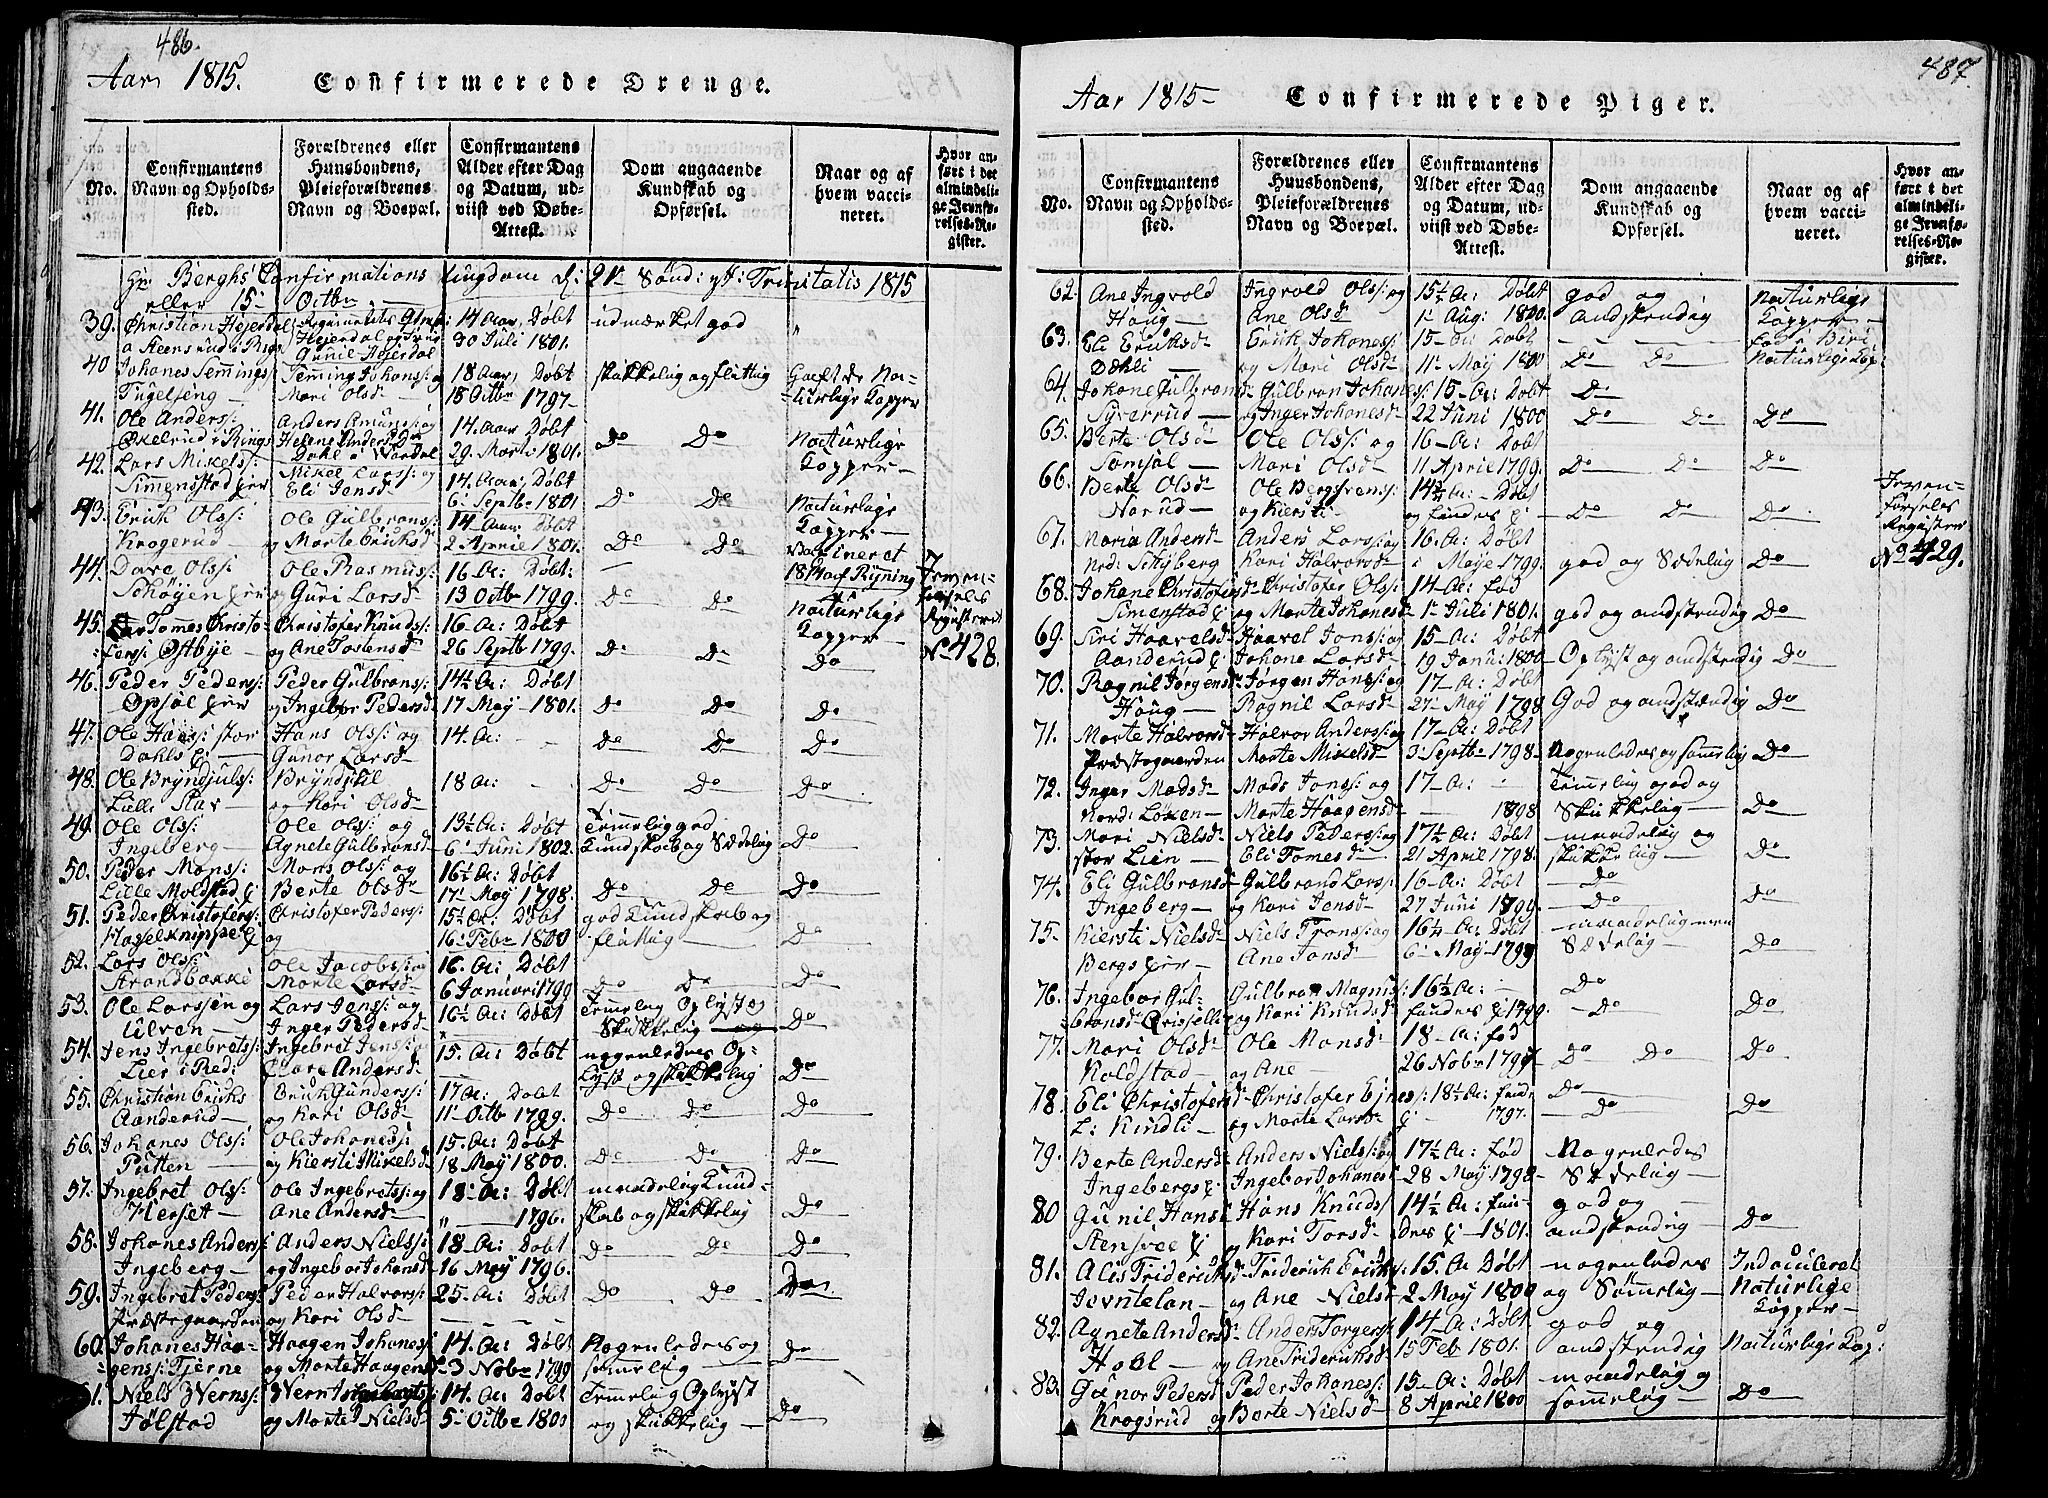 486.
Aar 1815. Confirmerede Drenge.
No.
Confirmantens Navn og Opholdssted.
Forældrenes eller Huusbondens, Pleieforældrenes Navn og Boepæl.
Confirmantens Alder efter Dag og Datum, udviist ved Døbe-Attest.
Dom angaaende Kundskab og Opførsel.
Naar og af hvem vaccineret.
Hvor anført i det almindelige Jevnførelses-Register.
Hr. Berghs Confirmations Ungdom d: 21 Sønd: eft: Trinitatis 1815
eller 15 Octbr
39. Christian Hejerdal
Hejerdal og Frue
Gunil Hejerdal
14 Aar, Døbt 30 Juli 1801. udmærket god "
40 Johanes Semmings: Semming Johans: og Mari Olsd 18 Aar, Døbt 15 Octbr 1797 skikkelig og flittig Havt de Naturlige Kopper
41. Ole Anders: Økelrud i Rings Anders Amunds: og Helene Andersd: Dahl i Vardal 14 Aar Døbt 29. Marti 1801. Do Do Naturlige Kopper
42. Lars Mikels: Simenstad Mikel Lars: og Eli Jensd 14. Aar, Døbt 6 Septbr 1801 Do Do Naturlige Kopper
43. Erich Ols: Krogerud Ole Gulbrans: og Marte Eriksd 14 Aar Døbt 2 April 1801. Do Do Vaccineret 1814 af Rÿning
44. Dave Ols: Schøÿen Ole Rasmus: og Guri Larsd 16 A: Døbt: 13 Octbr 1799. Do Do Naturlige Kopper Jevnførsels Registeret No 428.
45. Tomes Christofers: Østbÿe Christofer Knuds: og Ane Tostensd 16 A: Døbt 26 Septb 1799. Do Do Do
46. Peder Peders: Opsal Peder Gulbrans: og Ingebor Pedersd 14½ A: Døbt 17 May 1801. Do Do Do
47. Ole Hans: stor Dahls Hans Ols: og Gunor Larsd 14 A: Do Do Do
48. Ole Brÿndjuls: Lille Klar Brÿndjul og Kari Olsd 18 A: Do Do Do
49. Ole Ols: Ingeberg Ole Ols: og Agnete Gulbransd 13½ A: Døbt 6 Juni 1802. Temmelig god Kundskab og Sædelig Do
50. Peder Mons: Lille Moldstad Mons Ols: og Berte Olsd 16½ A: Døbt 17 May 1798. Do Do Do
51. Peder Christofers: Hasselknippe Christofer Peders: og 15½ A: Døbt 16 Febr 1800 god Kundskab og flittig Do
52. Lars Ols: Strandbakke Ole Jacobs: og Marte Larsd 16. A: Døbt 6 Januari 1799 Do Do Do
53. Ole Larssen og Ulven Lars Jens: og Inger Pedersd 16½ A: Døbt Temmelig Oplyst og Skikkelig Do
54. Jens Ingebrets: Lier i Red: Ingebret Jens: og Andersd 15. A: Døbt nogenledes Oplyst og skikkelig Do
55. Christian Eriks Aanderud Erick Gunders: og Kari Olsd 17 A: Døbt 11 Octb 1799. Do Do Do
56. Johanes Ols: Putten Ole Johanes: og Kiersti Mikelsd 15. A: Døbt 18 May 1800. Do Do Do
57. Ingebret Ols: Herset Ole Ingebrets: og Ane Andersd 18 A: Døbt " 1796. maadelig Kundskab og skikkelig Do
58. Johanes Anders: Ingeberg Anders Niels: og Ingebor Johansd 18 A: Døbt 16 May 1796. Do Do Do
59. Ingebret Peders: Præstegaarden Peder Halvors: og Kari Olsd 25. A: Døbt Do Do Do
60. Johanes Haagens: Tjerne Haagen Johanes: og Marte Haagensd 14. A: Døbt 3 Nobr 1799 Nogenledes og semmelig Do
61. Niels Wern: Jølstad Wern og Marte Nielsd 14. A: Døbt 5 Octbr 1800 Temmelig Oplyst og skikkelig Do
487.
Aar 1815 Confirmerede Piger.
No.
Confirmantens Navn og Opholdssted.
Forældrenes eller Huusbondens, Pleieforældrenes Navn og Boepæl.
Confirmantens Alder efter Dag og Datum, udviist ved Døbe-Attest.
Dom angaaende Kundskab og Opførsel.
Naar og af hvem vaccineret.
Hvor anført i det almindelige Jevnførelses-Register.
62. Ane Ingvold Houg Ingvold Ols: og Ane Olsd 15½ A: Døbt 1 Aug: 1800. god og anstændig Naturlige Kopper
63. Eli Eriksd Dæhli Erick Johanes: og Mari Olsd 15 A: Døbt 11 May 1800 Do Do Naturlige Kop:
64. Johane Gulbransd Syverrud Gulbran Johanes: og Inger Johanesd 15 A: Døbt 22 Juni 1800 Do Do Do Do
65. Berte Olsd Samsal Ole Ols: og Mari Olsd 16 A: Døbt 11 April 1799. Do Do Do
66. Berte Olsd Norud Ole Bergsvens: og Kiersti 14 A: Døbt og findes Do Do Do Jevnførsels Registeret No 429.
67. Maria Andersd Ned: Schÿberg Anders Lars: og Kari Halvorsd 16 A: Døbt i Maÿe 1799. god og Sædelig Do
68. Johane Christofersd Simenstad Christofer Ols: og Marte Johanesd 14 A: fød 1 Juli 1801. god og anstændig Do
69. Siri Haavelsd Aanderud Haavel Jons: og Johane Larsd 15 A: Døbt 19 Janu: 1800 Oplyst og anstændig Do
70. Ragnil Jørgensd Houg Jørgen Hans: og Ragnil Larsd 17 A: Døbt 27 May 1798 God og anstændig Do
71. Marte Halvorsd Præstegaarden Halvor Anders: og Marte Mikelsd 17 A: Døbt 3 Septbr 1798 Nogenledes og semmelig Do
72. Inger Madsd Nord: Løken Mads Jons: og Marte Haagensd 17 A: 1798 Temmelig god og Skikkelig Do
73. Mari Nielsd stor Lien Niels Peders: og Eli Tomesd 17½ A: Døbt 21 April 1798. maadelig og skikkelig Do
74. Eli Gulbransd Ingeberg Gulbrand Lars: og Kari Jensd 16 A: Døbt 27 Juni 1799 Do Do
75. Kiersti Nielsd Bergs Niels Frans: og Ane Jonsd 16½ A: Døbt 6 May 1799 maadelig men Sædelig Do
76. Ingebor Gulbransd Gulbran Magnis: og Kari Knudsd 16½ A: findes 1799. Do Do Do
77. Mari Olsd Koldstad Ole Monsd og Ane 18 A: fød 26 Nobr 1797 Do Do Do
78. Eli Christofersd L: Kindli Christofer Ejnes: og Marte Larsd 18½ A: find: 1797. Do Do Do
79. Berte Andersd Ingebergs Anders Niels: og Ingebor Johanesd 17½ A: fød 28 May 1798 Nogenledes Sædelig
80 Gunil Hansd Stensvee Hans Knuds: og Kari Torsd 14½ A: findes 1801. god og anstændig Do
81. Alis Friderichsd Friderich Eriks: og Ane Nielsd 15. A: Døbt 2 May 1800 nogenledes og Sømelig Indoculeret Naturlige Kopper
82. Agnete Andersd Hobl Anders Torgers: og Ane Fridericksd 14 A: Døbt 15 Feb 1801. god og anstændig Naturlige Kop:
83. Gunor Pedersd Krogsrud Peder Johanes: og Berte Nielsd 15 A: Døbt 8 April 1800 maadelig og sømelig Do